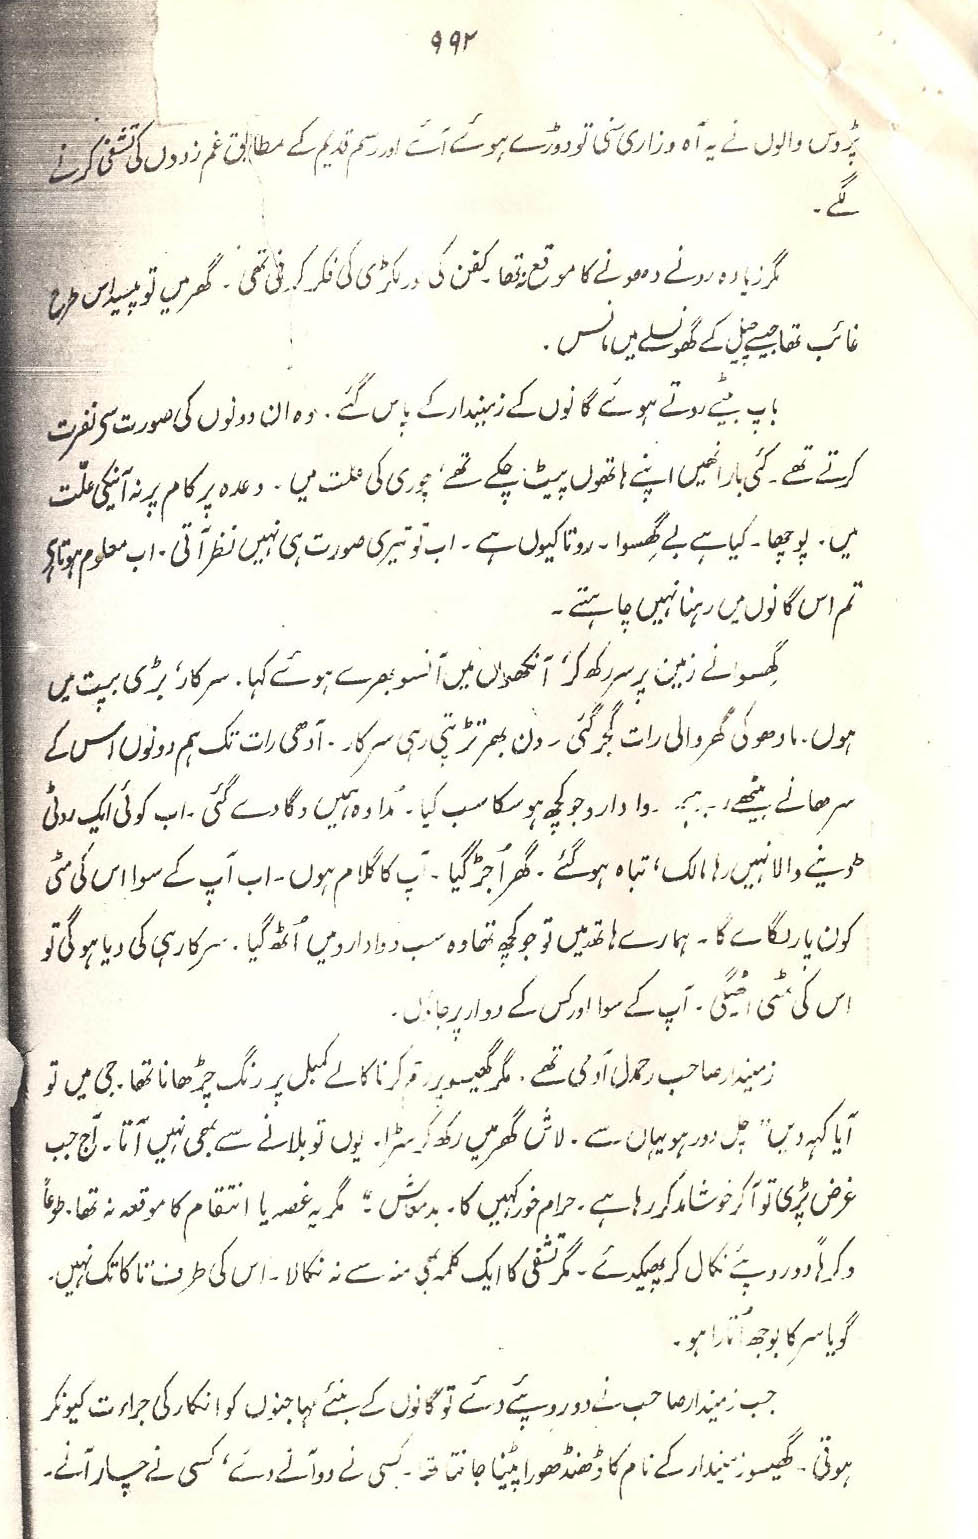 ۹۹۲
پڑوس والوں نے یہ آہ و زاری سنی تو دوڑے ہوئے آئے اور رسم قدیم کے مطابق غم زدوں کی تشفی کرنے
لگے۔
مگر زیادہ رونے دھونے کا موقع نہ تھا۔ کفن کی اور لکڑی کی فکر کرنی تھی۔ گھر میں تو پیسہ اس طرح
غائب تھا جیسے چیل کے گھونسلے میں مانس۔
باپ بیٹے روتے ہوئے گانوں کے زمیندار کے پاس گئے۔ وہ ان دونوں کی صورت سے نفرت
کرتے تھے۔ کئی بار انھیں اپنے ہاتھوں پیٹ چکے تھے، چوری کی علت میں۔ وعدہ پر کام پر نہ آنیکی علّت
میں۔ پوچھا۔ کیا ہے بے گھِسوا۔ روتا کیوں ہے۔ اب تو تیری صورت ہی نہیں نظر آتی۔ اب معلوم ہوتا ہے
تم اس گانوں میں رہنا نہیں چاہتے۔
گھِسو نے زمین پر سر رکھ کر، آنکھوں میں آنسو بھرے ہوئے کہا۔ سرکار، بڑی بپت میں
ہوں۔ مادھو کی گھر والی رات گجر گئی۔ دن بھر تڑپتی رہی سرکار۔ آدھی رات تک ہم دونوں اس کے
سرھانے بیٹھے رہے۔ دوا دارو جو کچھ ہو سکا سب کیا۔ مُدا وہ ہمیں دگا دے گئی۔ اب کوئی ایک روٹی
دینے والا نہیں رہا مالک، تباہ ہو گئے۔ گھر اُجڑ گیا۔ آپ کا گلام ہوں۔ اب آپ کے سوا اس کی مٹی
کون پار لگاے گا۔ ہمارے ہاتھ میں تو جو کچھ تھا وہ سب دوا دارو میں اُٹھ گیا۔ سرکار ہی کی دیا ہو گی تو
اس کی مٹی اٹھیگی۔ آپ کے سوا اور کس کے دوار پر جاؤں۔
زمیندار صاحب رحمدل آدمی تھے۔ مگر گھیسو پر رحم کرنا کالے کمبل پر رنگ چڑھانا تھا۔ جی میں تو
آیا کہہ دیں "چل دور ہو یہاں سے۔ لاش گھر میں رکھ کر سڑا۔ یوں تو بلانے سے بھی نہیں آتا۔ آج جب
غرض پڑی تو آ کر خوشامد کر رہا ہے۔ حرام خور کہیں کا۔ بدمعاش۔" مگر یہ غصہ یا انتقام کا موقعہ نہ تھا۔ طوعاً
و کرہاً دو روپئے نکال کر پھینکدئے۔ مگر تشفی کا ایک کلمہ بھی منہ سے نہ نکالا۔ اس کی طرف تاکا تک نہیں۔
گویا سر کا بوجھ اُتارا ہو۔
جب زمیندار صاحب نے دو روپئے دئے تو گانوں کے بنئے مہاجنوں کو انکار کی جراءت کیونکر
ہوتی۔ گھیسو زمیندار کے نام کا ڈھنڈھورا پیٹنا جانتا تھا۔ کسی نے دو آنے دے، کسی نے چار آنے۔